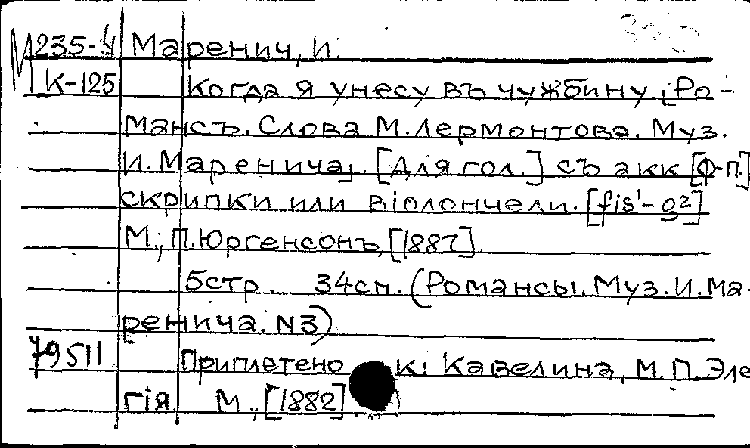 М 235-4 Маренич, И.
К-125 Когда я унесу въ чужбину. [Ро-
мансъ. Слова М. Лермонтова. Муз.
И. Маренича]. [Для гол.] съ акк [ф-п.]
скрипки или вiолончели. [fis¹-g²]
М., П. Юргенсонъ, [1887]
5стр. 34см. (Романсы. Муз. И. Ма-
ренича. N3)
79511 Приплетено к: Кавелина, М. П. Эле
гiя М., [1882].